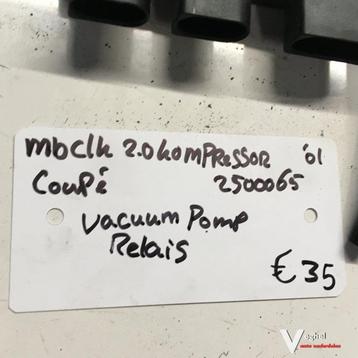 mbclk 2.0 kompressor '01
Coupé 2500065
Vacuum Pomp
Relais
€35